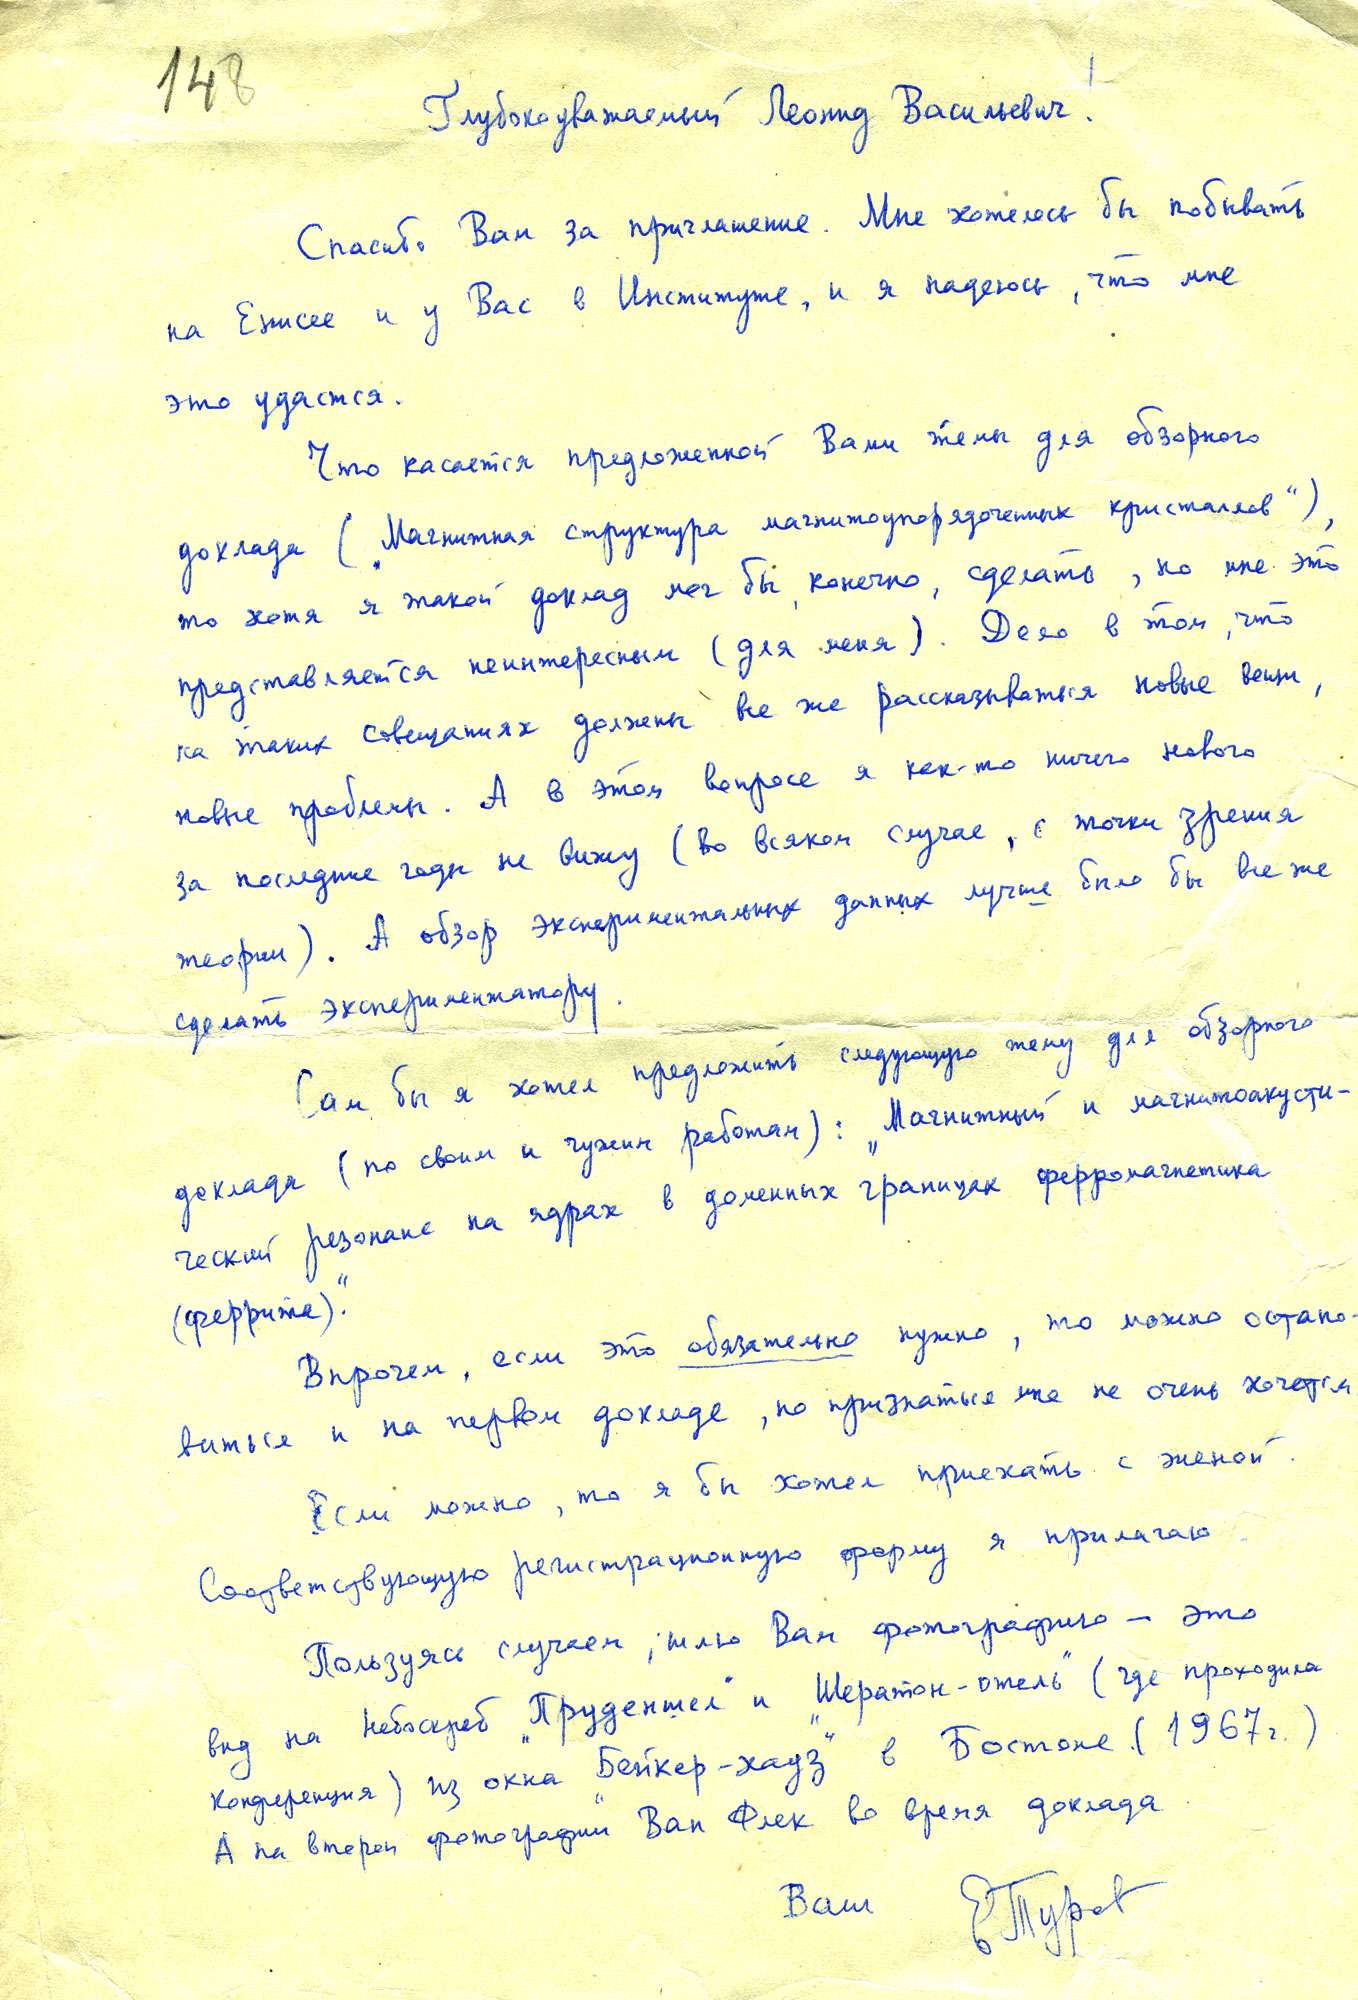 148
Глубокоуважаемый Леонид Васильевич!
Спасибо Вам за приглашение. Мне хотелось бы побывать
на Енисее и у Вас в Институте, и я надеюсь, что мне
это удастся.
Что касается предложенной Вами темы для обзорного
доклада („Магнитная структура магнитоупорядоченных кристаллов“),
то хотя я такой доклад мог бы, конечно, сделать, но мне это
представляется неинтересным (для меня). Дело в том, что
на таких совещаниях должны все же рассказываться новые вещи,
новые проблемы. А в этом вопросе я как-то ничего нового
за последние годы не вижу (во всяком случае, с точки зрения
теории). А обзор экспериментальных данных лучше было бы все же
сделать экспериментатору.
Сам бы я хотел предложить следующую тему для обзорного
доклада (по своим и чужим работам): „Магнитный и магнитоакусти-
ческий резонанс на ядрах в доменных границах ферромагнетика
(феррита).“
Впрочем, если это обязательно нужно, то можно остано-
виться и на первом докладе, но признаться мне не очень хочется
Если можно, то я бы хотел приехать с женой.
Соответствующую регистрационную форму я прилагаю.
Пользуясь случаем, шлю Вам фотографию – это
вид на небоскреб „Пруденшел“ и „Шератон-отель“ (где проходила
конференция) из окна „Бейкер-хауз“ в Бостоне (1967г.)
А на второй фотографии Ван Флек во время доклада.
Ваш ЕТуров